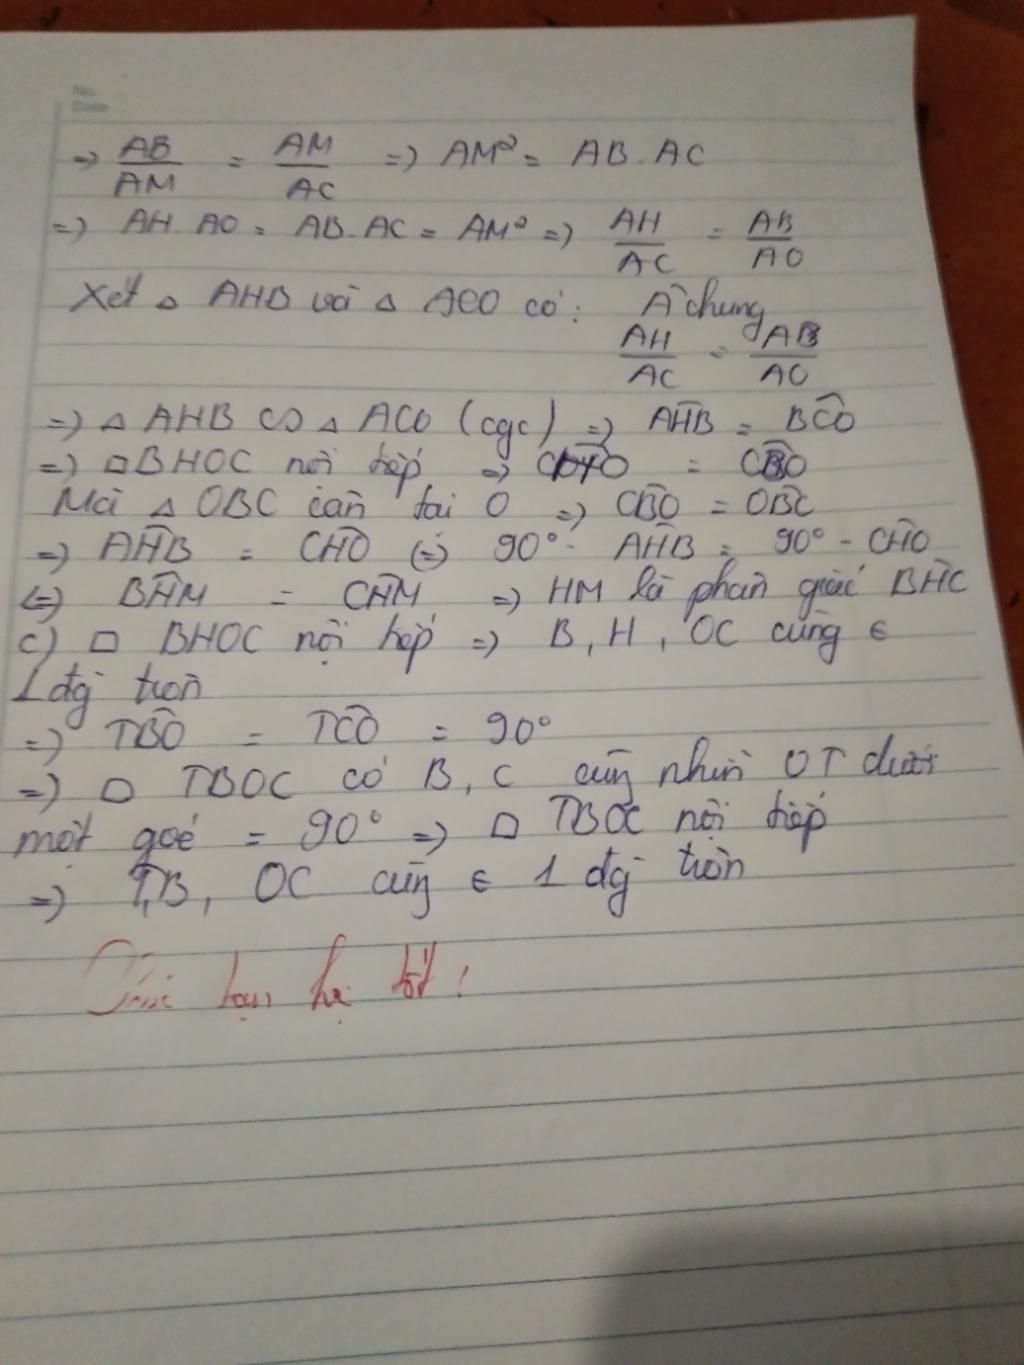 No.
Date
=> AB/AM = AM/AC => AM² = AB.AC
=> AH.AO = AB.AC = AM² => AH/AC = AB/AO
Xét △ AHB và △ ACO có: Â chung
AH/AC = AB/AO
=> △ AHB ∽ △ ACO (cgc) => AĤB = BĈO
=> □BHOC nội tiếp => CĤO = CB̂O
Mà △ OBC cân tại O => CB̂O = OB̂C
=> AĤB = CĤO <=> 90° - AĤB = 90° - CĤO
<=> BĤM = CĤM => HM là phân giác BĤC
c) □ BHOC nội tiếp => B, H, OC cùng ∈
1 đg tròn
=> TB̂O = TĈO = 90°
=> □ TBOC có B, C cùng nhìn OT dưới
một goé = 90° => □ TBOC nội tiếp
=> T,B, OC cùng ∈ 1 đg tròn
Chúc bạn học tốt!